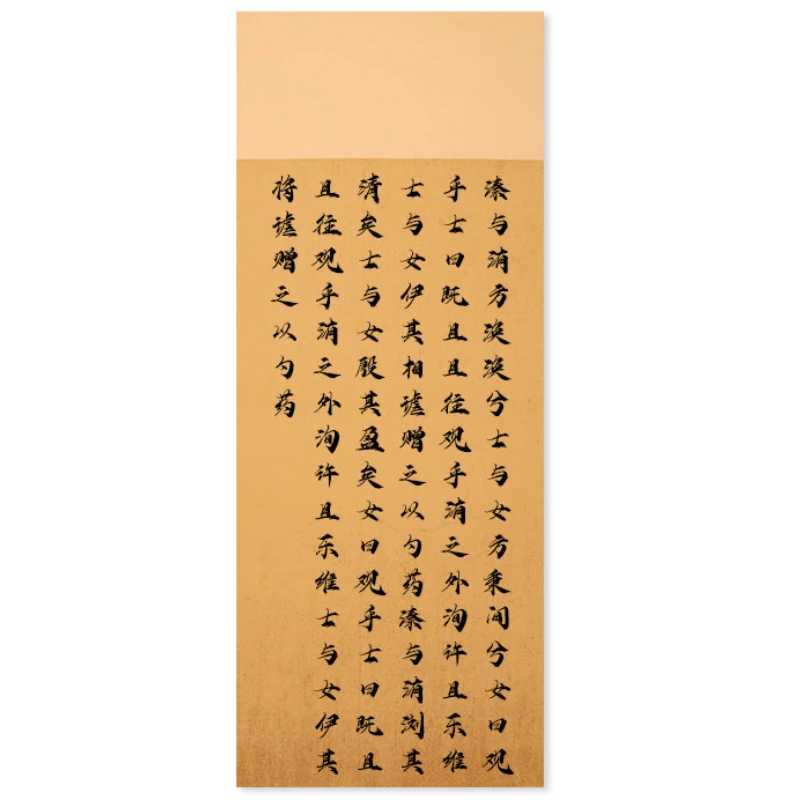 溱与洧方涣涣兮士与女方秉间兮女曰观
乎士曰既且且往观乎洧之外洵许且乐维
士与女伊其相谑赠之以勺药溱与洧浏其
清矣士与女殷其盈矣女曰观乎士曰既且
且往观乎洧之外洵许且乐维士与女伊其
将谑赠之以勺药